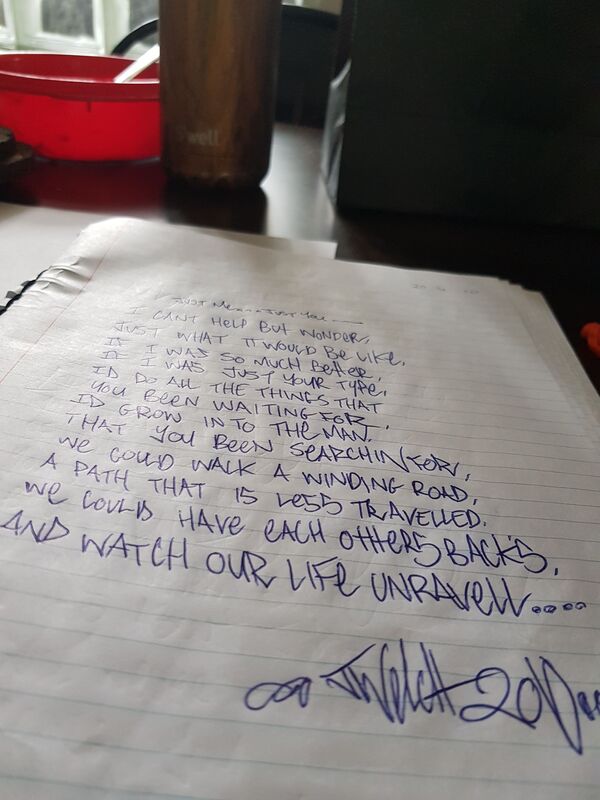 S'well
JUST ME.... JUST YOU ......
I CANT HELP BUT WONDER,
JUST WHAT IT WOULD BE LIKE,
IF I WAS SO MUCH BETTER,
IF I WAS JUST YOUR TYPE,
ID DO ALL THE THINGS THAT
YOU BEEN WAITING FOR,
ID GROW IN TO THE MAN.
THAT YOU BEEN SEARCHIN FOR,
WE COULD WALK A WINDING ROAD,
A PATH THAT IS LESS TRAVELLED.
WE COULD HAVE EACH OTHERS BACK'S,
AND WATCH OUR LIFE UNRAVELL....
JWelch